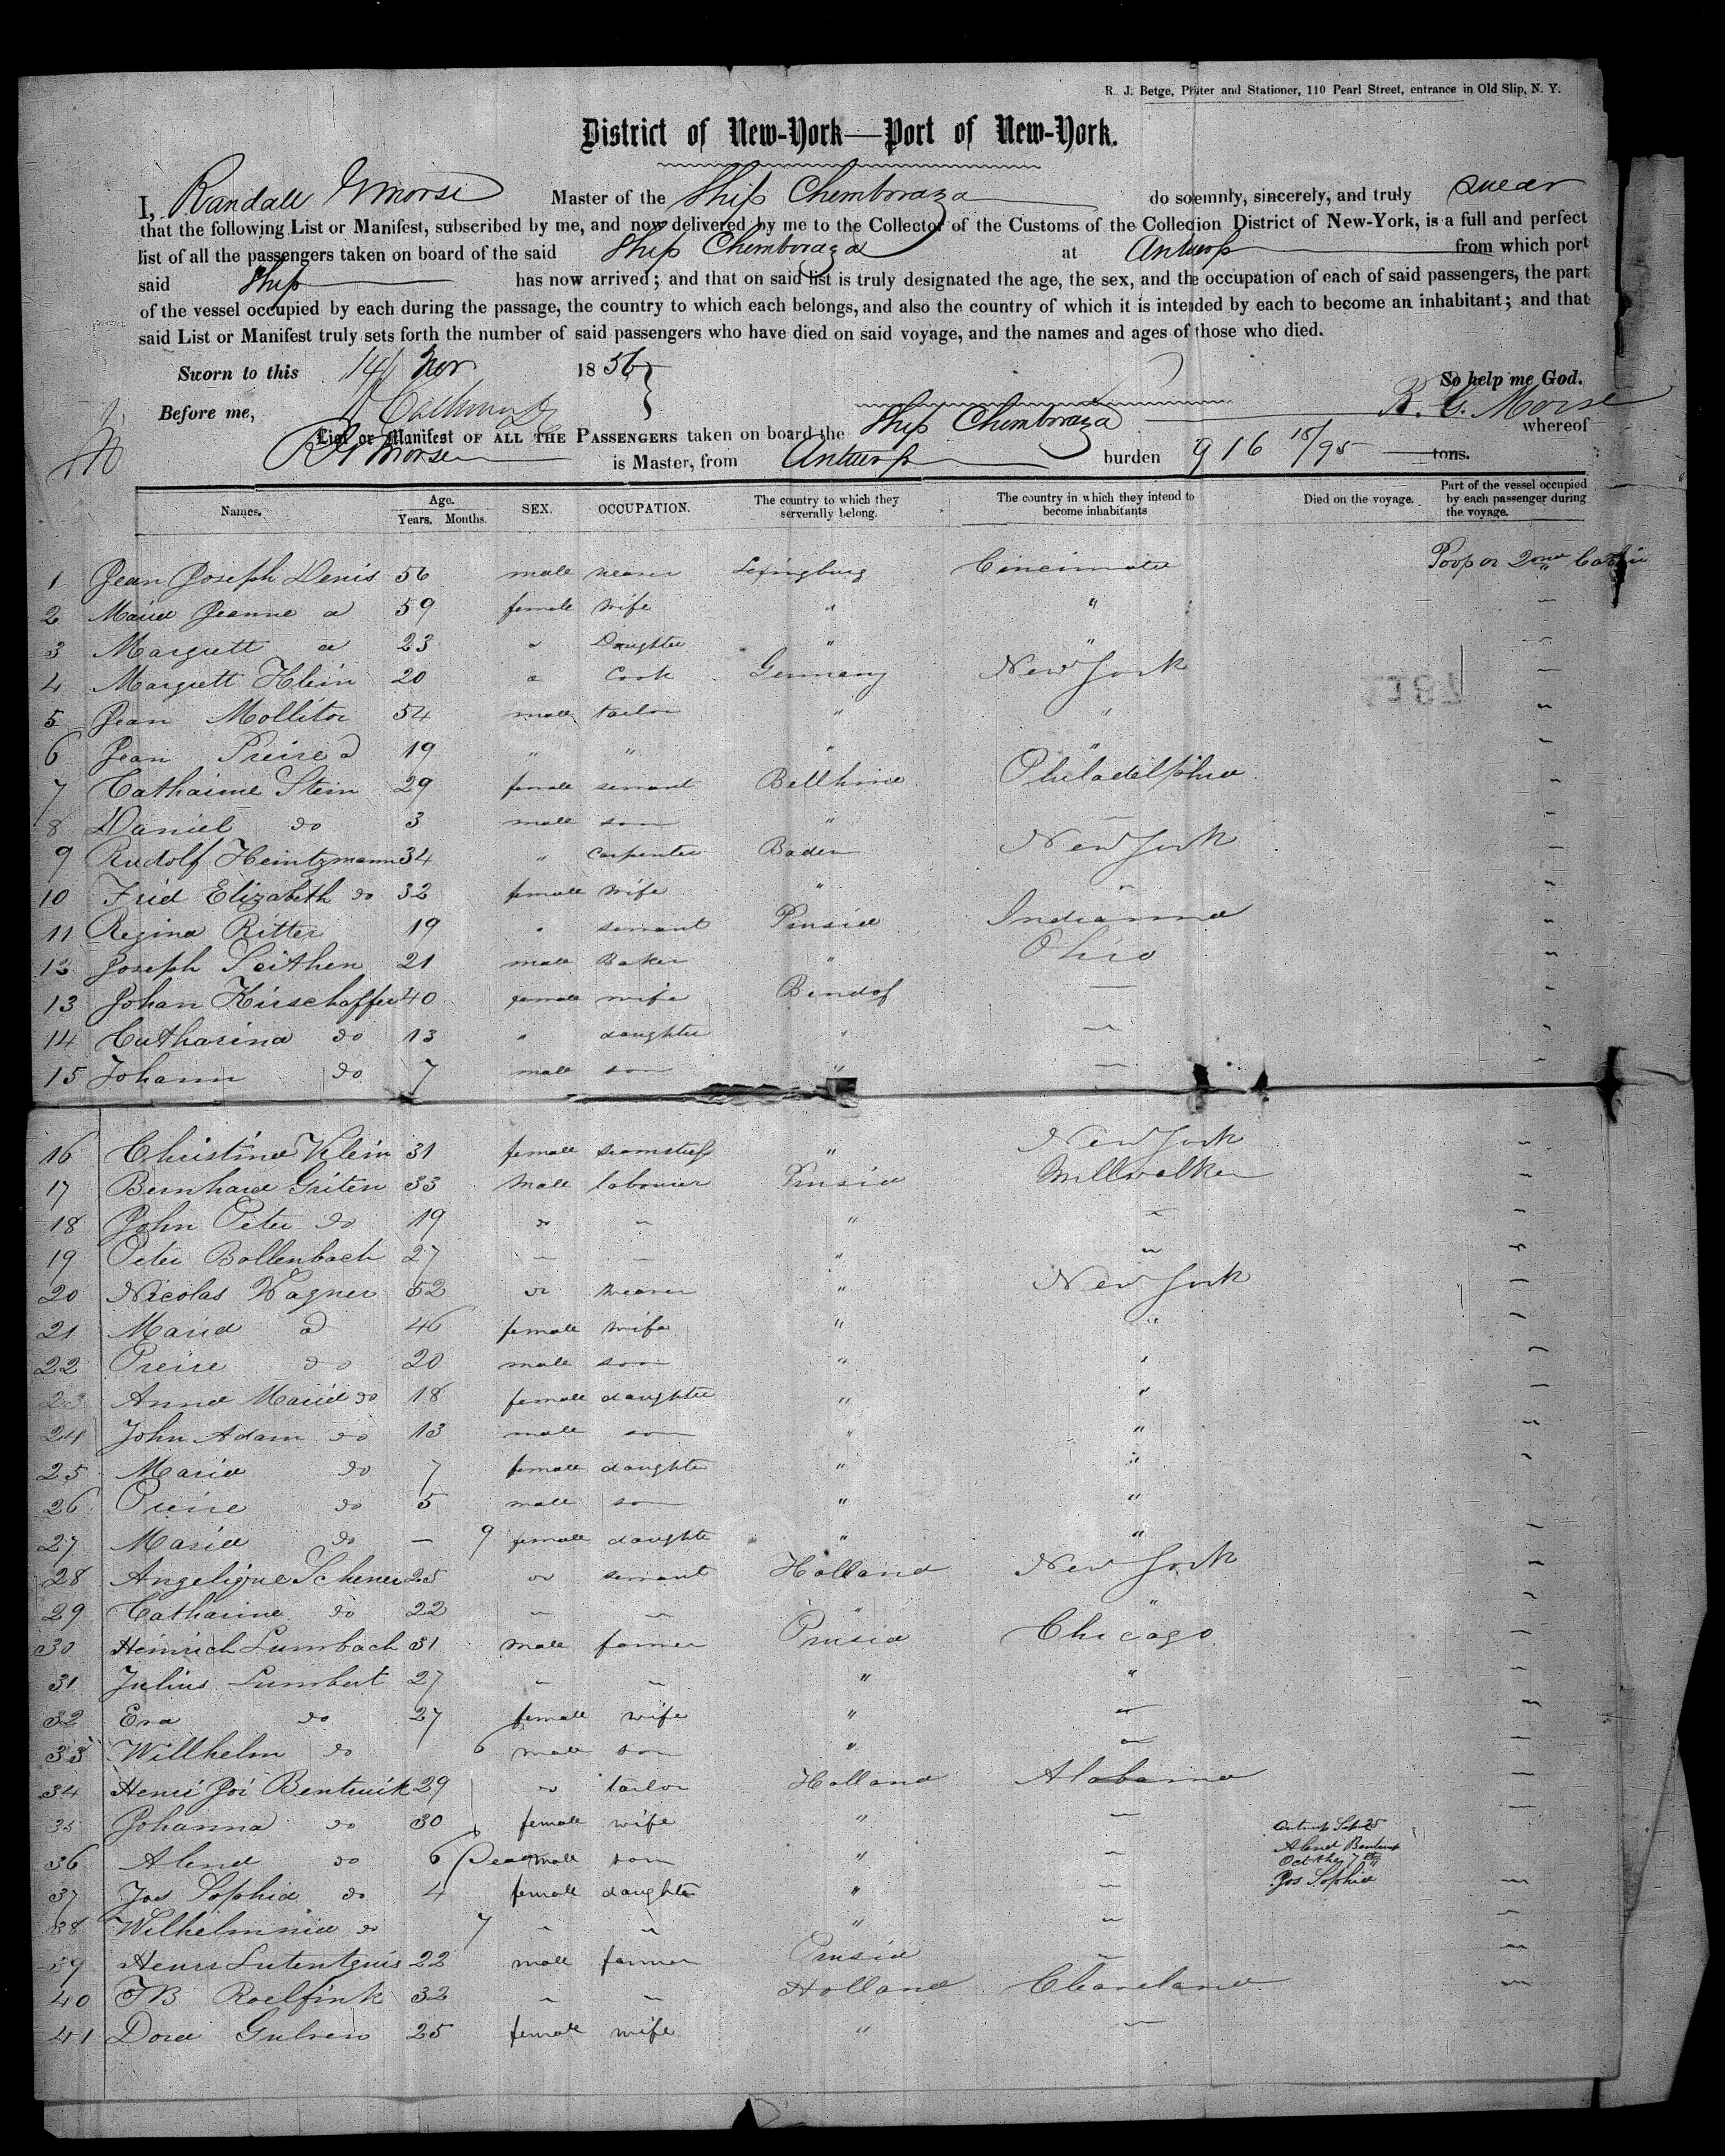 R. J. Betge, Printer and Stationer, 110 Pearl Street, entrance in Old Slip, N. Y.
District of New-York—Port of New-York.
I, Randall G Morse Master of the Ship Chemboraza do solemnly, sincerely, and truly swear
that the following List or Manifest, subscribed by me, and now delivered by me to the Collector of the Customs of the Collection District of New-York, is a full and perfect
list of all the passengers taken on board of the said Ship Chemboraza at Antwerp from which port
said Ship has now arrived; and that on said list is truly designated the age, the sex, and the occupation of each of said passengers, the part
of the vessel occupied by each during the passage, the country to which each belongs, and also the country of which it is intended by each to become an inhabitant; and that
said List or Manifest truly sets forth the number of said passengers who have died on said voyage, and the names and ages of those who died.
Sworn to this 14 Nov 1856
So help me God.
Before me, R. G. Morse
List or Manifest OF ALL THE PASSENGERS taken on board the Ship Chemboraza whereof
R G Morse is Master, from Antwerp burden 916 15/95 tons.
Names. Age. Years. Months. SEX. OCCUPATION. The country to which they serverally belong. The country in which they intend to become inhabitants Died on the voyage. Part of the vessel occupied by each passenger during the voyage.
1 Jean Joseph Denis 56 male weaver Cincinnati Poop or 2nd Cabin
2 Maria Jeanne d 59 female wife " "
3 Margrett d 23 " Daughter " "
4 Margrett Klein 20 " Cook Germany New York
5 Jean Mollitor 54 male tailor " "
6 Jean Preire d 19 " " " "
7 Catharine Stein 29 female servant Philadelphia
8 Daniel do 3 male son "
9 Rudolf Heintzmann 34 " carpenter Baden New York
10 Frid Elizabeth do 32 female wife " "
11 Regina Ritter 19 " servant Prusia Indianna
12 Joseph Seithen 21 male Baker " Ohio
13 Johan Kirschoffer 40 female wife Bendof —
14 Catharina do 13 " daughter " —
15 Johann do 7 male son " —
16 Christina Klein 31 female seamstress " New York
17 Bernhard Griten 33 Male labourer Prusia Millwalker
18 John Peter do 19 do " " "
19 Peter Bollenbach 27 " " " "
20 Nicolas Wagner 52 do weaver " New York
21 Maria d 46 female wife " "
22 Preire do 20 male son " "
23 Anna Maria do 18 female daughter " "
24 John Adam do 13 male son " "
25 Maria do 7 female daughter " "
26 Preire do 5 male son " "
27 Maria do — 9 female daughte " "
28 Angelique Schener 25 do servant Holland New York
29 Catharine do 22 " " " "
30 Heinrich Lumbach 31 male farmer Prusia Chicago
31 Julius Lumbert 27 " " " "
32 Eva do 27 female wife " "
33 Willhelm do 6 male son " "
34 Henri Joi Bentwik 29 do tailor Holland Alabama
35 Johanna do 30 female wife " —
36 Alend do 6 Dead male son " —
37 Jos Sophia do 4 female daughte " —
38 Wilhelminia do 7 " " " —
Antwp Sep 25
Alend Bentwik
Oct the 7th
Jos Sophia
39 Henri 22 male farmer Prusia —
40 JB Roelfink 32 " " Holland Cleaveland
41 Dora Gulven 25 female wife " —